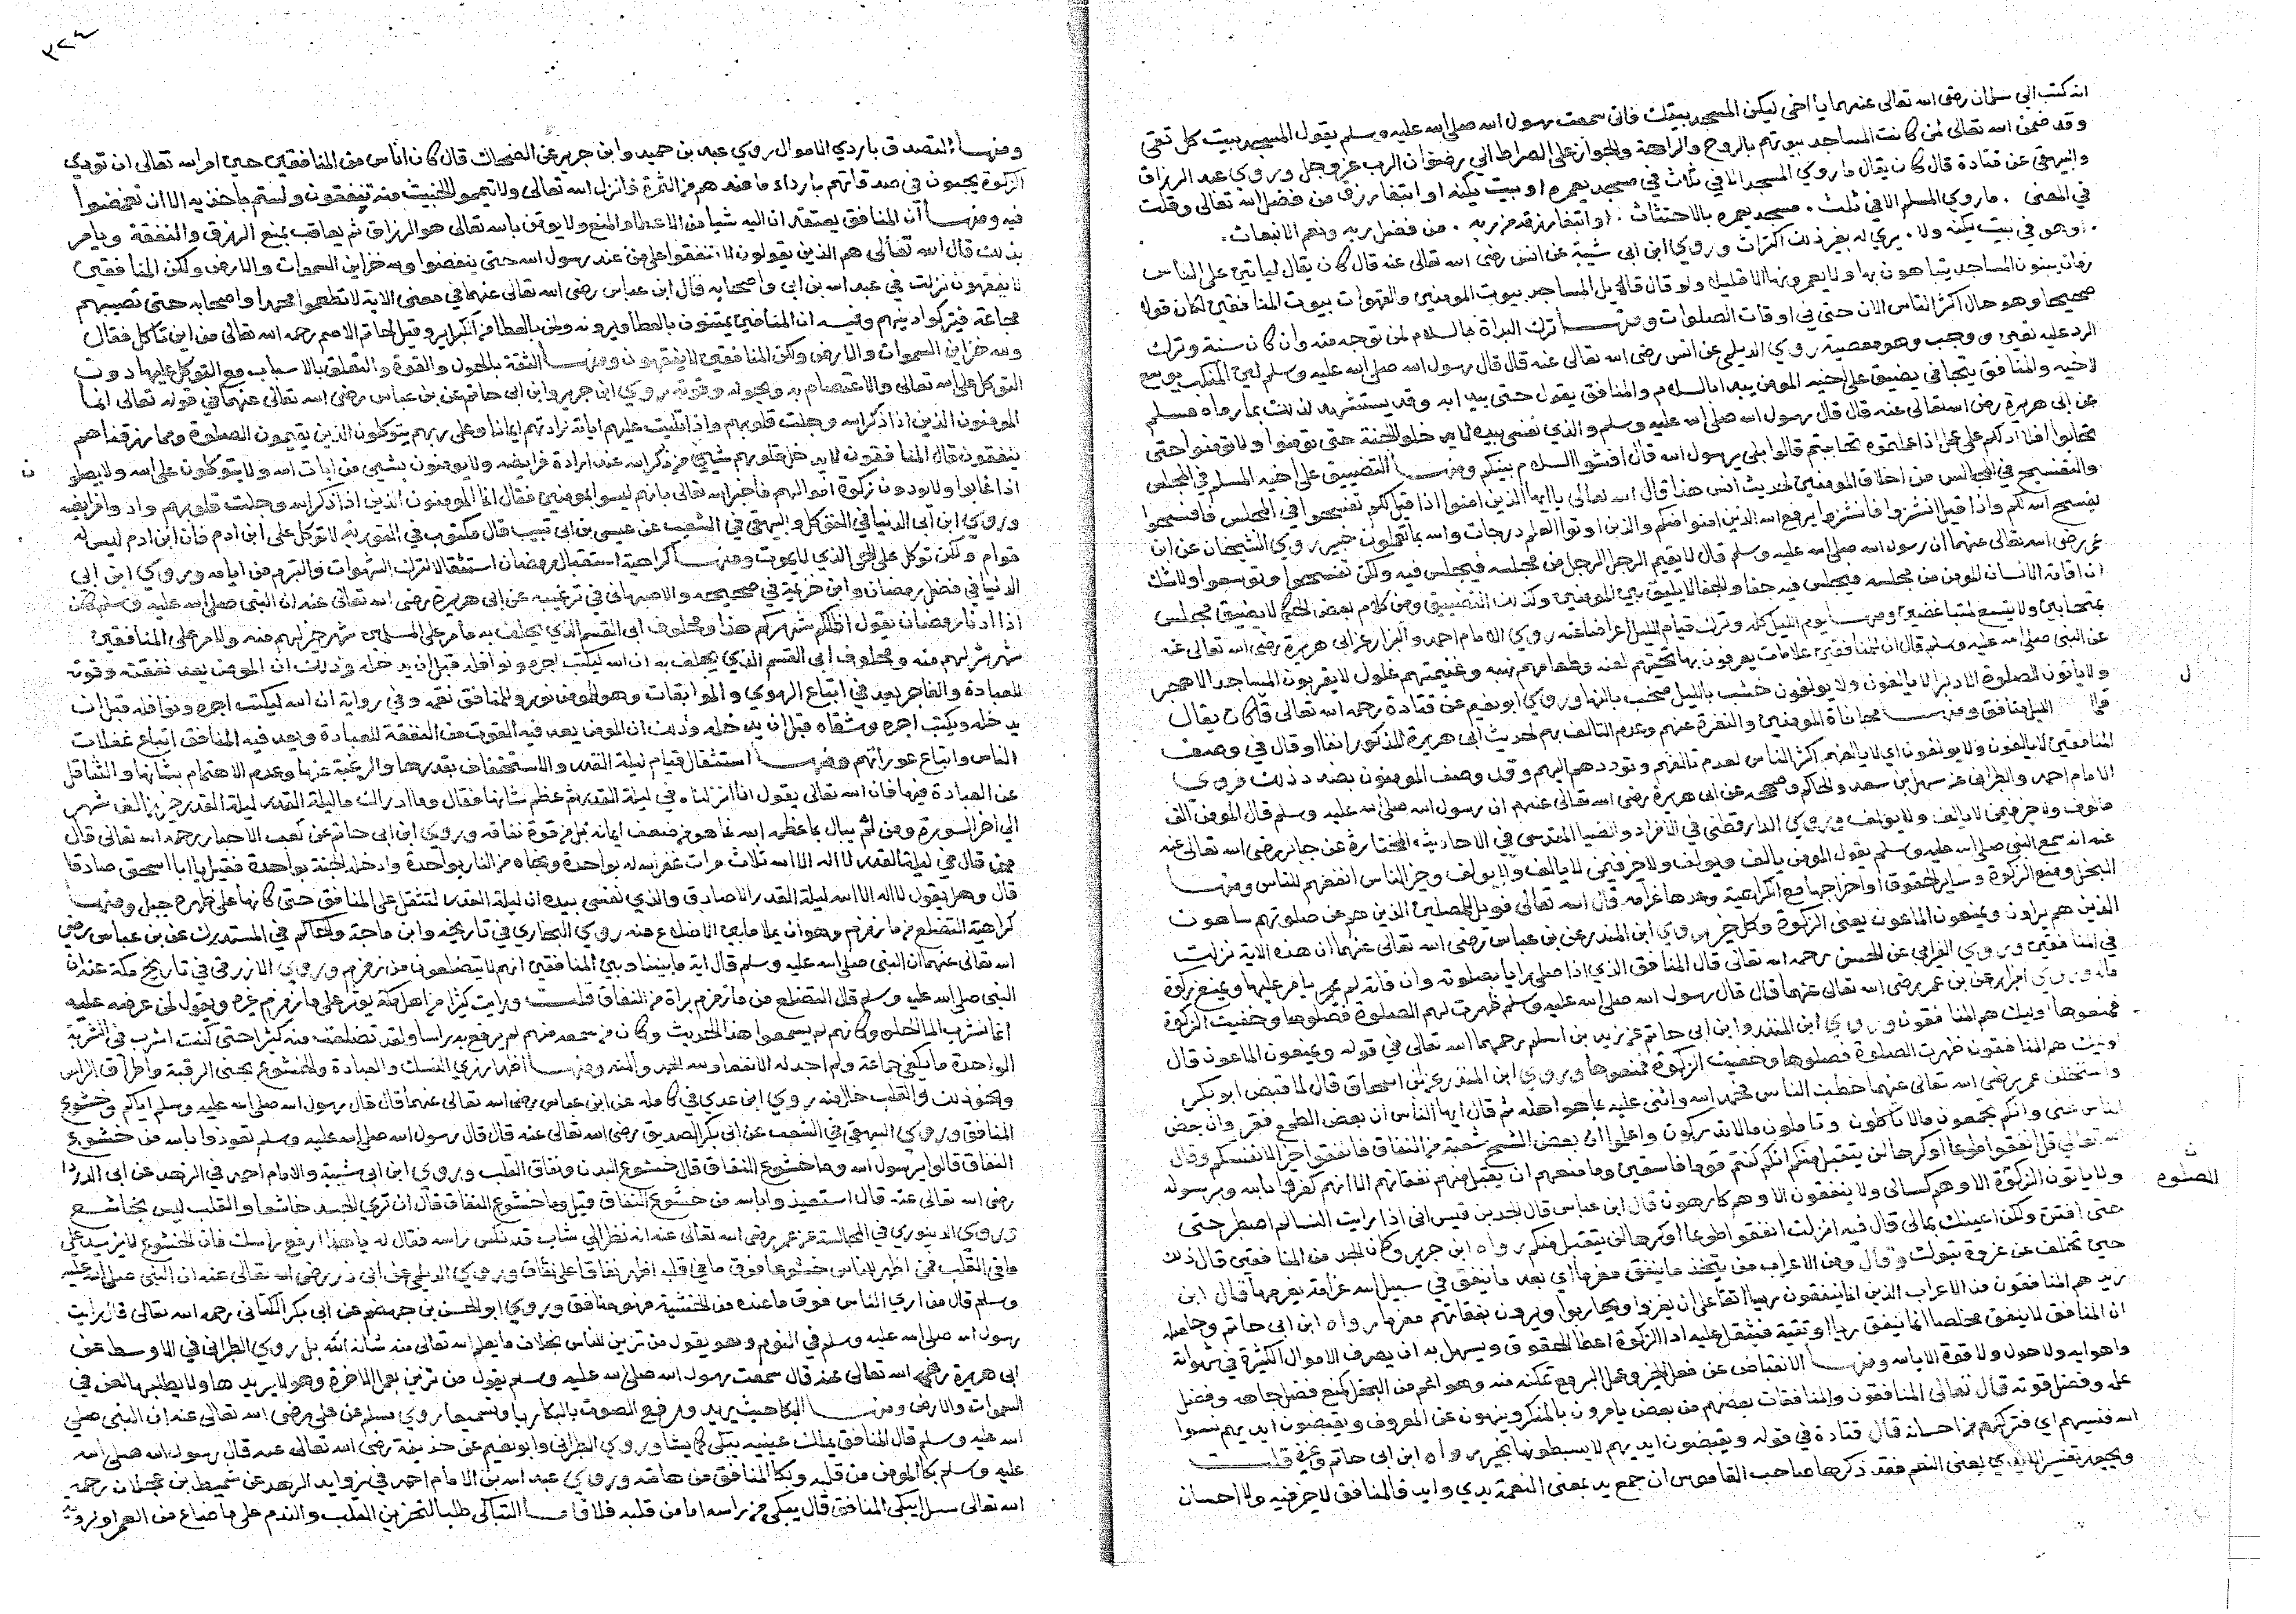 انه كتب الى سلمان رضى الله تعالى عنهما يا اخى ليكن المسجد بيتك فانى سمعت رسول الله صلى الله عليه وسلم يقول المسجد بيت كل تقى
وقد ضمن الله تعالى لمن كانت المساجد بيوتهم بالروح والراحة والجواز على الصراط الى رضوان الرب عز وجل وروى عبد الرزاق
والبيهقى عن قتادة قال كان يقال ما روى المسجد الا في ثلاث في مسجد يعمره او بيت يكنه او ابتغاء رزق من فضل الله تعالى وقلت
في المعنى . ما روي المسلم الا في ثلث . مسجد يعمره بالاحتثاث . او ابتغا رزقه من ربه . من فضل ربه ونعم الانبعاث .
. او هو في بيت يكنه ولا . يرى له بغير ذلك اكتراث وروى ابن ابى شيبة عن انس رضى الله تعالى عنه قال كان يقال لياتين على الناس
زمان يبنون المساجد يتباهون بها ولا يعمرونها الا قليلا ولو قال قائل المساجد بيوت المومنين والقهوات بيوت المنافقين لكان قوله
صحيحا وهو حال اكثر الناس الان حتى في اوقات الصلوات ومنها ترك البداة بالسلام لمن توجه منه وان كان سنة وترك
الرد عليه نفى ووجب وهو معصية روى الديلمى عن انس رضى الله تعالى عنه قال قال رسول الله صلى الله عليه وسلم لين المنكب يوسع
لاخيه والمنافق يتجافى يضيق على اخيه المومن يبدا بالسلام والمنافق يقول حتى يبدا به وقد يستشهد لذلك بما رواه مسلم
عن ابى هريرة رضى الله تعالى عنه قال قال رسول الله صلى الله عليه وسلم والذي نفسى بيده لا يدخلوا الجنة حتى تومنوا ولا تومنوا حتى
تحابوا افلا ادلكم على عمل اذا عملتموه تحاببتم قالوا بلى يرسول الله قال افشوا السلام بينكم ومنها التضييق على اخيه المسلم في المجلس
والتفسيح في المجالس من اخلاق المومنين لحديث انس هذا قال الله تعالى يا ايها الذين امنوا اذا قيل لكم تفسحوا في المجلس فافسحوا
يفسح الله لكم واذا قيل انشزوا فانشزوا يرفع الله الذين امنوا منكم والذين اوتوا العلم درجات والله بما تعملون خبير روى الشيخان عن ابن
عمر رضى الله تعالى عنهما ان رسول الله صلى الله عليه وسلم قال لا يقيم الرجل الرجل من مجلسه فيجلس فيه ولكن تفسحوا وتوسعوا ولا شك
ان اقامة الانسان للمومن من مجلسه فيجلس فيه جفا والجفا لا يليق بين المومنين وكذلك التضييق ومن كلام بعض الحكما لا يضيق مجلس
بمتحابين ولا يتسع لمتباغضين ومنها نوم الليل كله وترك قيام الليل اعراضا عنه روى الامام احمد والبزار عن ابى هريرة رضى الله تعالى عنه
عن النبى صلى الله عليه وسلم قال ان للمنافقين علامات يعرفون بها تحيتهم لعنة وطعامهم نهبة وغنيمتهم غلول لا يقربون المساجد الا هجرا
ولا ياتون الصلوة الا دبرا لا يالفون ولا يولفون خشب بالليل صخب بالنهار وروى ابو نعيم عن قتادة رحمه الله تعالى قال كان يقال
قل ما الليل منافق ومنها مجافاة المومنين والنفرة عنهم وعدم التالف بهم لحديث ابى هريرة المذكور انفا وقال في وصف
المنافقين لا يالفون ولا يولفون اي لا يالفهم اكثر الناس لعدم تالفهم وتوددهم اليهم وقد وصف المومنون بضد ذلك فروى
الامام احمد والطبرانى عن سهل بن سعد والحاكم وصححه عن ابى هريرة رضى الله تعالى عنهم ان رسول الله صلى الله عليه وسلم قال المومن الف
مالوف ولا خير فيمن لا يالف ولا يولف وروى الدارقطنى في الافراد والضيا المقدسى في الاحاديث المختارة عن جابر رضى الله تعالى عنه
عنه انه سمع النبى صلى الله عليه وسلم يقول المومن يالف ويولف ولا خير فيمن لا يالف ولا يولف وخير الناس انفعهم للناس ومنها
البخل ومنع الزكوة وساير الحقوق او اخراجها مع الكراهية وعدها غرامة قال الله تعالى فويل للمصلين الذين هم عن صلوتهم ساهون
الذين هم يراون ويمنعون الماعون يعنى الزكوة وكل خير روى ابن المنذر عن بن عباس رضى الله تعالى عنهما ان هذه الاية نزلت
في المنافقين وروى الفريابى عن الحسن رحمه الله تعالى قال المنافق الذي اذا صلى رايا بصلوته وان فاتته لم يندم يامر عليها ويمنع زكوة
ماله وروى البزار عن بن عمر رضى الله تعالى عنهما قال قال رسول الله صلى الله عليه وسلم ظهرت لهم الصلوة فصلوها وخفيت الزكوة
فمنعوها اوليك هم المنافقون وروى ابن المنذر وابن ابى حاتم عن زيد بن اسلم رحمهما الله تعالى في قوله ويمنعون الماعون قال
اوليك هم المنافقون ظهرت الصلوة فصلوها وخفيت الزكوة فمنعوها وروى ابن المنذر عن ابن اسحاق قال لما قبض ابو بكر
واستخلف عمر رضى الله تعالى عنهما خطب الناس فحمد الله واثنى عليه بما هو اهله ثم قال ايها الناس ان بعض الطمع فقر وان بعض
الياس غنى وانكم تجمعون مالا تاكلون وتاملون مالا تدركون واعلموا ان بعض الشح شعبة من النفاق فانفقوا خيرا لانفسكم وقال
الله تعالى قل انفقوا طوعا او كرها لن يتقبل منكم انكم كنتم قوما فاسقين وما منعهم ان يقبل منهم نفقاتهم الا انهم كفروا بالله وبرسوله
ولا ياتون الزكوة الا وهم كسالى ولا ينفقون الا وهم كارهون قال ابن عباس قال الجد بن قيس انى اذا رايت النسا لم اصطبر حتى
الصلوة
حتى افتتن ولكن اعينك بمالى قال فيه انزلت انفقوا طوعا او كرها لن يتقبل منكم رواه ابن جرير وكان الجد من المنافقين قال ذلك
حين تخلف عن غزوة تبوك وقال ومن الاعراب من يتخذ ما ينفق مغرما اي يعد ما ينفق في سبيل الله غرامة يغرمها قال ابن
زيد هم المنافقون من الاعراب الذين انما ينفقون ريا اتقا على ان يغزوا ويحاربوا ويرون نفقاتهم مغرما رواه ابن ابى حاتم وحاصله
ان المنافق لا ينفق مخلصا انما ينفق ريا او تقية فيثقل عليه ادا الزكوة اعطا الحقوق ويسهل به ان يصرف الاموال الكثيرة في شهواته
واهوايه ولا حول ولا قوة الا بالله ومنها الانقباض عن فعل الخير وعمل البر مع تمكنه منه وهو اعم من البخل كمنع فضل جاهه وفضل
علمه وفضل قوته قال تعالى المنافقون والمنافقات بعضهم من بعض يامرون بالمنكر وينهون عن المعروف ويقبضون ايديهم نسوا
الله فنسيهم اي فتركهم من احسانه قال قتادة في قوله ويقبضون ايديهم لا يبسطونها بخير رواه ابن ابى حاتم وغيره قلت
ويجوز تفسير الايدي بمعنى النعم فقد ذكرها صاحب القاموس ان جمع يد بمعنى النعمة يدي وايد فالمنافق لا خير فيه ولا احسان
٣٢٤
ومنها التصدق باردي الاموال روى عبد بن حميد وابن جرير عن الضحاك قال كان اناس من المنافقين حين امر الله تعالى ان تودى
الزكوة يجيون في صدقاتهم باردا ما عندهم من الثمرة فانزل الله تعالى ولا تيمموا الخبيث منه تنفقون ولستم باخذيه الا ان تغمضوا
فيه ومنها ان المنافق يعتقد ان اليه شيا من الاعطاء والمنع ولا يوقن بالله تعالى هو الرزاق ثم يعاقب بمنع الرزق والنفقة ويامر
بذلك قال الله تعالى هم الذين يقولون لا تنفقوا على من عند رسول الله حتى ينفضوا ولله خزاين السموات والارض ولكن المنافقين
لا يفقهون نزلت في عبد الله بن ابى واصحابه قال ابن عباس رضى الله تعالى عنهما في معنى الاية لا تطعموا محمدا واصحابه حتى تصيبهم
مجاعة فيتركوا دينهم وفيه ان المنافقين يمتنون بالعطا ويرونه ولمن بالعطا من الكباير وقيل لحاتم الاصم رحمه الله تعالى من اين تاكل فقال
ولله خزاين السموات والارض ولكن المنافقين لا يفقهون ومنها الثقة بالحول والقوة والتعلق بالاسباب مع التوكل عليها دون
التوكل على الله تعالى والاعتصام به وبحوله وقوته روى ابن جرير وابن ابى حاتم عن بن عباس رضى الله تعالى عنهما في قوله تعالى انما
المومنون الذين اذا ذكر الله وجلت قلوبهم واذا تليت عليهم اياته زادتهم ايمانا وعلى ربهم يتوكلون الذين يقيمون الصلوة ومما رزقناهم
ينفقون قال المنافقون لا يدخل قلوبهم شيى من ذكر الله عند ارادة فرايضه ولا يومنون بشيى من ايات الله ولا يتوكلون على الله ولا يصلون
اذا غابوا ولا يودون زكوة اموالهم فاخبر الله تعالى بانهم ليسوا بمومنين فقال انما المومنون الذين اذا ذكر الله وجلت قلوبهم وادوا فرايضه
وروى ابن ابى الدنيا في التوكل والبيهقى في الشعب عن عيسى بن ابى قال مكتوب في التورية لا توكل على ابن ادم فان ابن ادم ليس له
قوام ولكن توكل على الحى الذي لا يموت ومنها كراهية استقبال رمضان استثقالا لترك الشهوات والتبرم من ايامه وروى ابن ابى
الدنيا في فضل رمضان وابن خزيمة في صحيحه والاصبهانى في ترغيبه عن ابى هريرة رضى الله تعالى عنه ان النبى صلى الله عليه وسلم كان
اذا دنا رمضان يقول اظلكم شهركم هذا ومحلوف ابى القسم الذي يحلف به ما مر على المسلمين شهر خير لهم منه ولا مر على المنافقين
شهر شر لهم منه ومحلوف ابى القسم الذي يحلف به ان الله ليكتب اجره ونوافله قبل ان يدخله وذلك ان المومن يعد نفقته وقوته
للعبادة والفاجر يعد في اتباع الهوي والموابقات وهو للمومن نور وللمنافق نقمة وفي رواية ان الله ليكتب اجره ونوافله قبل ان
يدخله ويكتب اجره وشقاه قبل ان يدخله وذلك ان المومن يعد فيه القوت من النفقة للعبادة ويعد فيه المنافق اتباع غفلات
الناس واتباع عوراتهم ومنها استثقال قيام ليلة القدر والاستخفاف بقدرها والرغبة عنها وعدم الاهتمام بشانها والتثاقل
عن العبادة فيها فان الله تعالى يقول انا انزلناه في ليلة القدر ثم عظم شانها فقال وما ادراك ما ليلة القدر ليلة القدر خير من الف شهر
الى اخر السورة ومن لم يبال بما عظمه الله فما هو من ضعف ايمانه بل من قوة نفاقه وروى ابن ابى حاتم عن كعب الاحبار رحمه الله تعالى قال
من قال في ليلة القدر لا اله الا الله ثلاث مرات غفر الله له بواحدة ونجاه من النار بواحدة وادخله الجنة بواحدة فقيل يا ابا اسحق صادقا
قال وهل يقول لا اله الا الله ليلة القدر الا صادق والذي نفسى بيده ان ليلة القدر لتثقل على المنافق حتى كانها على ظهره جبل ومنها
كراهية التضلع من ما زمزم وهو ان يملا ما بين الاضلاع منه روى البخاري في تاريخه وابن ماجة والحاكم في المستدرك عن بن عباس رضى
الله تعالى عنهما ان النبى صلى الله عليه وسلم قال اية ما بيننا وبين المنافقين انهم لا يتضلعون من زمزم وروى الازرقى في تاريخ مكة عنه ان
النبى صلى الله عليه وسلم قال التضلع من ما زمزم براة من النفاق قلت ورايت كثيرا من اهل مكة يوثر على ما زمزم غيره ويقول لمن عرضه عليه
انما اشرب الما الحلو وكانهم لم يسمعوا هذا الحديث وكان من سمعه منهم لم يرفع به راسا ولقد تضلعت منه كثيرا حتى كنت اشرب في الشربة
الواحدة ما يكفى جماعة ولم اجد له الا نفعا ولله الحمد والمنة ومنها اظهار زي النسك والعبادة والخشوع بحنى الرقبة واطراق الراس
ونحو ذلك والقلب خال منه روى ابن عدي في كامله عن ابن عباس رضى الله تعالى عنهما قال قال رسول الله صلى الله عليه وسلم اياكم وخشوع
المنافق وروى البيهقى في الشعب عن ابى بكر الصديق رضى الله تعالى عنه قال قال رسول الله صلى الله عليه وسلم تعوذوا بالله من خشوع
النفاق قالوا يرسول الله وما خشوع النفاق قال خشوع البدن ونفاق القلب وروى ابن ابى شيبة والامام احمد في الزهد عن ابى الدردا
رضى الله تعالى عنه قال استعيذوا بالله من خشوع النفاق قيل وما خشوع النفاق قال ان تري الجسد خاشعا والقلب ليس بخاشع
وروى الدينوري في المجالسة عن عمر رضى الله تعالى عنه انه نظر الى شاب قد نكس راسه فقال له يا هذا ارفع راسك فان الخشوع لا يزيد على
ما في القلب فمن اظهر للناس خشوعا فوق ما في قلبه اظهر نفاقا على نفاق وروى الديلمى عن ابى ذر رضى الله تعالى عنه ان النبى صلى الله عليه
وسلم قال من اري الناس فوق ما عنده من الخشية فهو منافق وروى ابو الحسن بن جهضم عن ابى بكر الكتانى رحمه الله تعالى قال رايت
رسول الله صلى الله عليه وسلم في النوم وهو يقول من تزين للناس بخلاف ما يعلم الله تعالى منه شانه الله بل روى الطبرانى في الاوسط عن
ابى هريرة رضى الله تعالى عنه قال سمعت رسول الله صلى الله عليه وسلم يقول من تزين بعمل الاخرة وهو لا يريدها ولا يطلبها لعن في
السموات والارض ومنها البكا حيث يريد ورفع الصوت بالبكا ريا وتسميعا روى عن على رضى الله تعالى عنه ان النبى صلى
الله عليه وسلم قال المنافق يملك عينيه يبكى كما يشا وروى الطبرانى وابو نعيم عن حذيفة رضى الله تعالى عنه قال رسول الله صلى الله
عليه وسلم بكا المومن من قلبه وبكا المنافق من هامته وروى عبد الله بن الامام احمد في زوايد الزهد عن شميط بن عجلان رحمه
الله تعالى سيل ايبكى المنافق قال يبكى من راسه اما من قلبه فلا فاما التباكى طلبا لتحزين القلب والندم على ما ضاع من العمر